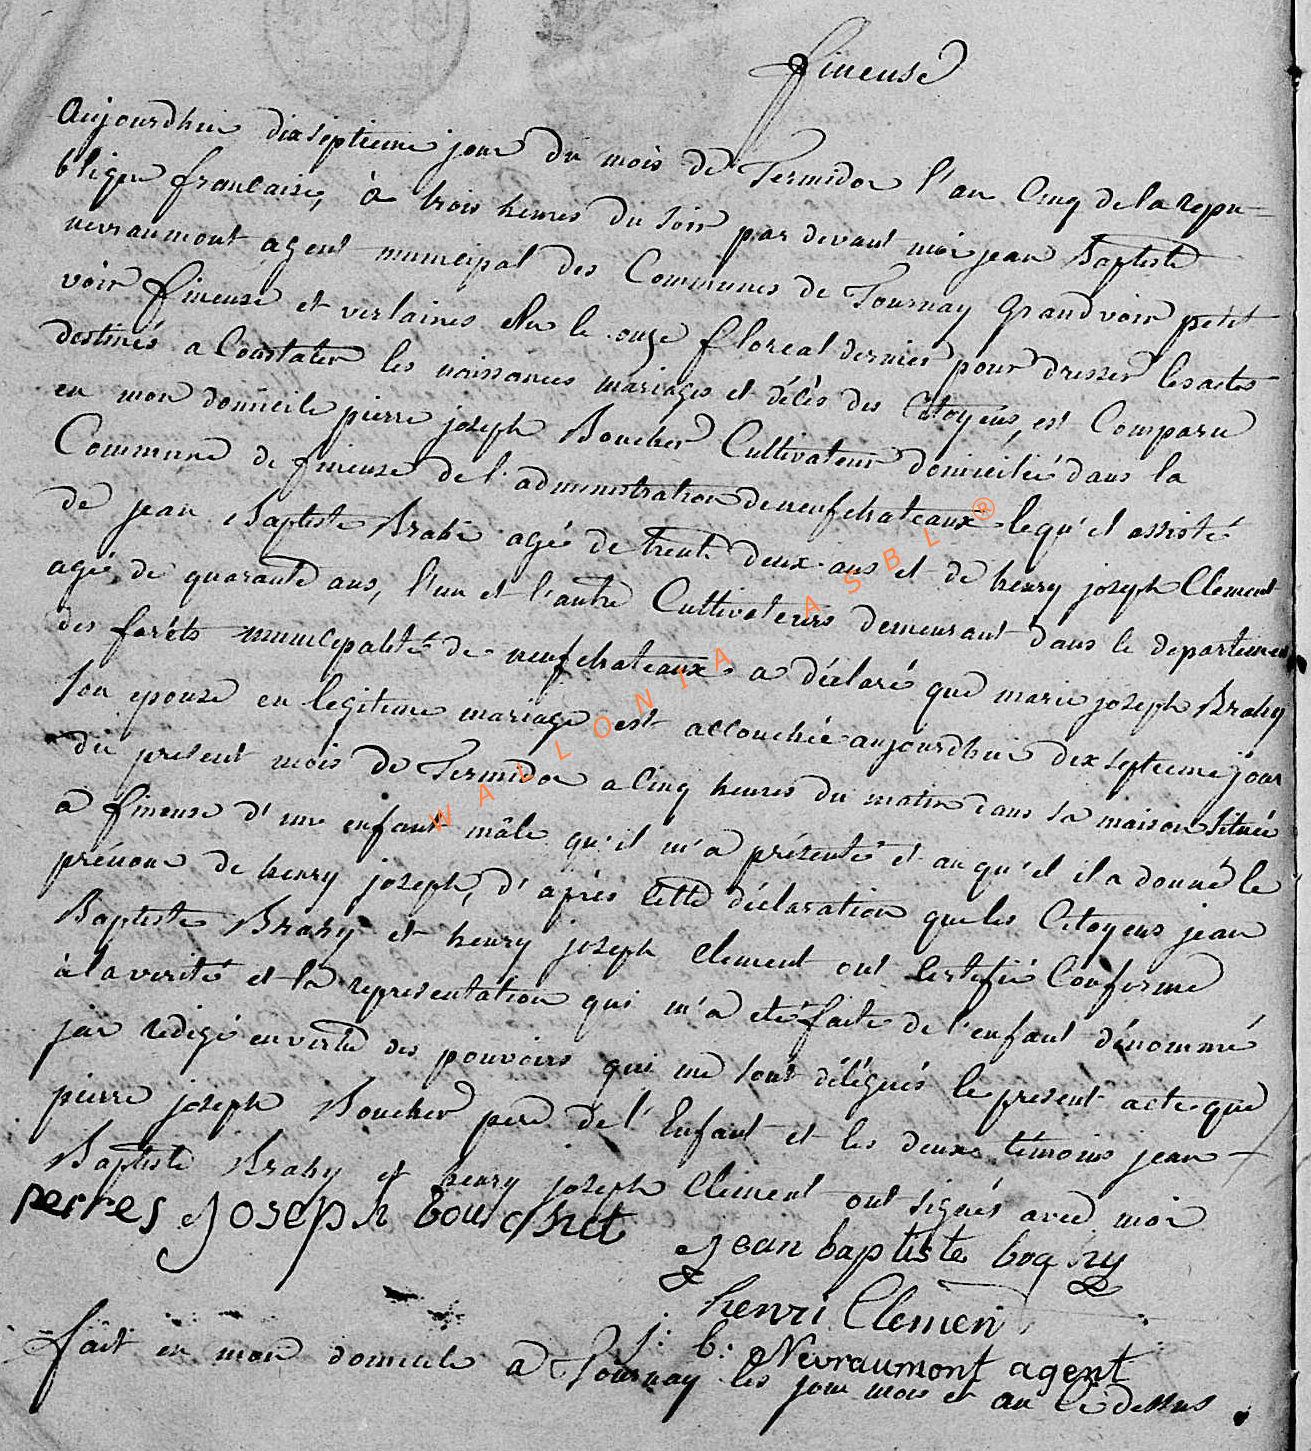 fineuse
Aujourdhui dixseptieme jour du mois de Termidor l'an Cinq de la repu-
blique francaise, à trois heures du soir par devant moi jean Baptiste
nevraumont agent municipal des Communes de Tournay grandvoir petit
voir fineuse et verlaines élu le onze floreal dernier pour dresser les actes
destinés a Constater les naissances mariages et décès des Citoyens, est Comparu
en mon domicile pierre joseph Boucher Cultivateur domicilié dans la
Commune de fineuse de l'administration de neufchateaux lequ'el assisté
de jean Baptiste Brahi agé de trente deux ans et de henry joseph Clement
agé de quarante ans, l'un et l'autre Cultivateurs demeurant dans le departement
des foréts municipalité de neufchateaux a déclaré que marie joseph Brahy
son epouse en legitime mariage est accouchée aujourdhui dixseptieme jour
du present mois de Termidor a Cinq heures du matin dans sa maison située
a fineuse d'une enfant mâle qu'il m'a présenté et au qu'el il a donné le
prénom de henry joseph, d'après cette déclaration que les Citoyens jean
Baptiste Brahy et henry joseph Clement ont Certifié Conforme
à la verité et la representation qui m'a eté faite de l'enfant dénommé
jai redigé en vertu des pouvoirs qui me sont délégués le present acte que
pierre joseph Boucher pere de l'Enfant et les deux témoins jean
Baptiste Brahy et henry joseph Clement ont signés avec moi
perres Joseph bouchet
Jean baptiste bra hy
henri Clemen
j: b: Nevraumont agent
fait en mon domicile a Tournay les jour mois et an Ci dessus.
WALLONIA ASBL ®